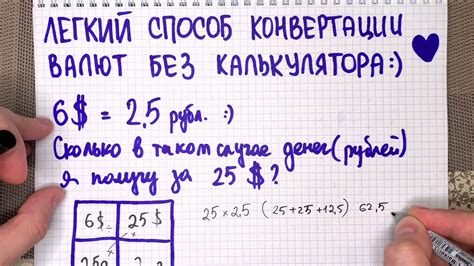 ЛЕГКИЙ СПОСОБ КОНВЕРТАЦИИ
ВАЛЮТ БЕЗ КАЛЬКУЛЯТОРА:)
6$ = 2,5 рубл. :)
Сколько в таком случае денег (рублей)
я получу за 25 $?
6$ ÷ 25 $
25 × 2,5 (25+25+12,5) 62,5